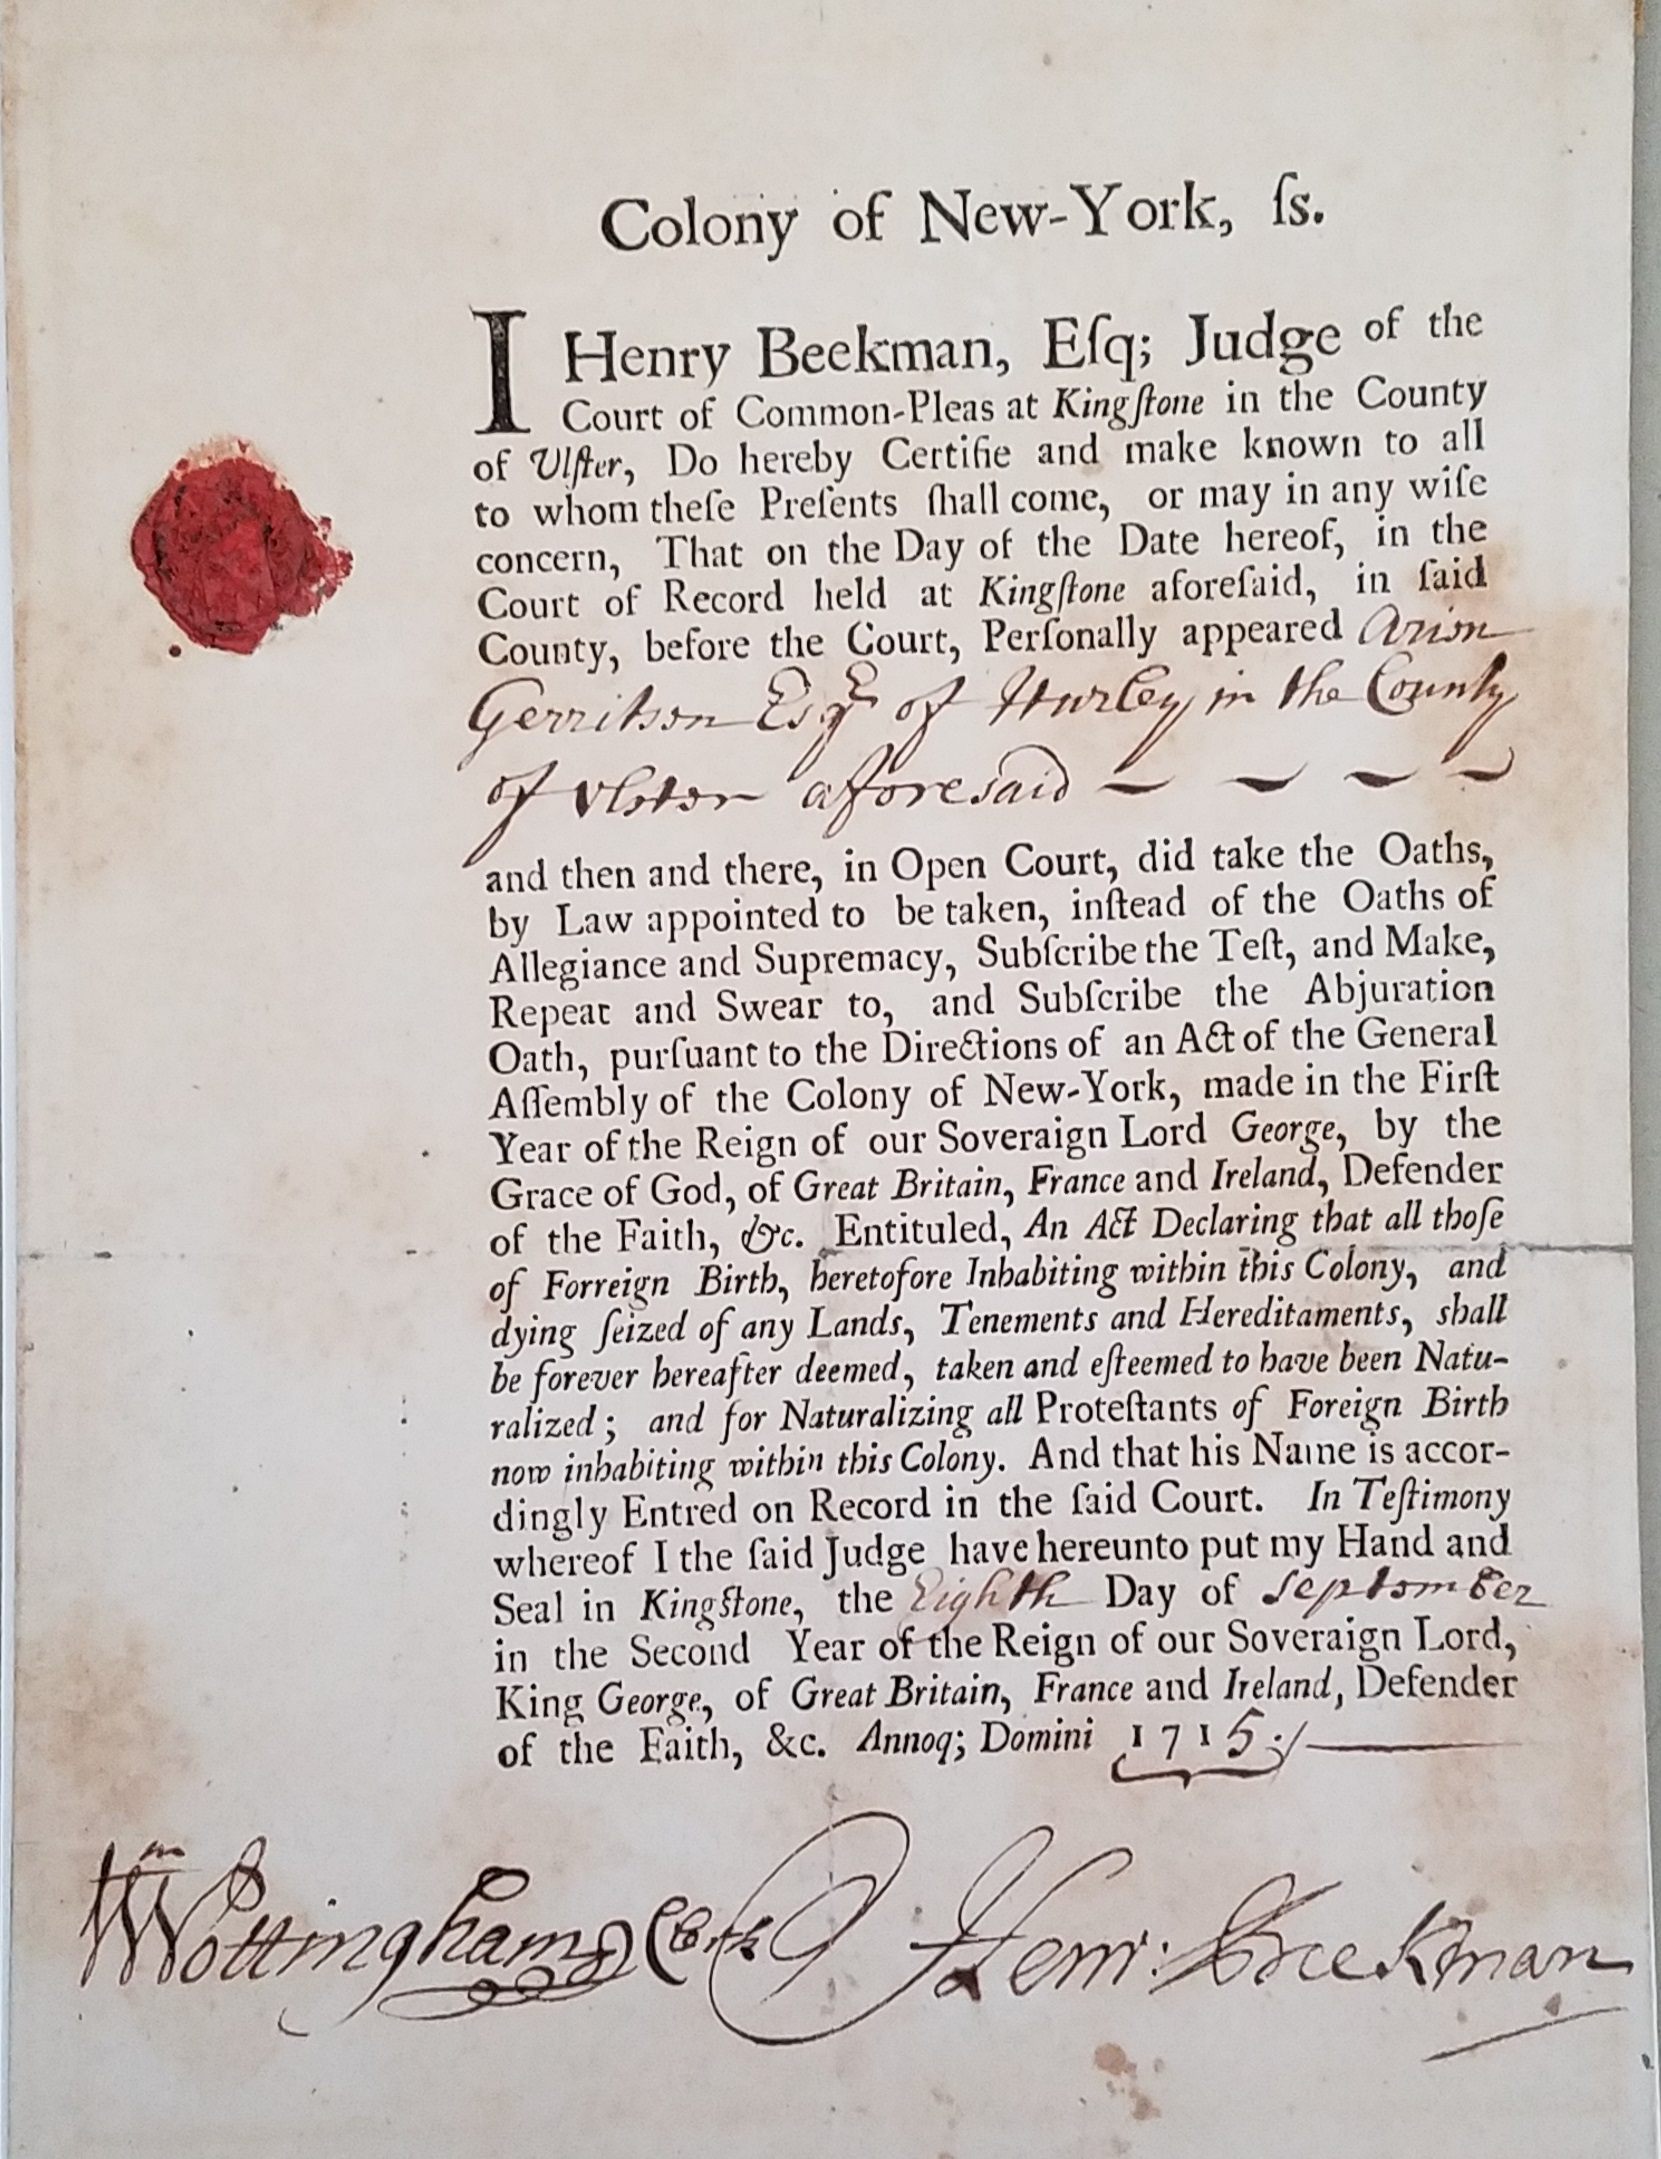 Colony of New-York, ſs.
I Henry Beekman, Eſq; Judge of the
Court of Common-Pleas at Kingſtone in the County
of Ulſter, Do hereby Certifie and make known to all
to whom theſe Preſents ſhall come, or may in any wiſe
concern, That on the Day of the Date hereof, in the
Court of Record held at Kingſtone aforeſaid, in ſaid
County, before the Court, Perſonally appeared Arion
Gerritson Esqr of Hurley in the County
of Vlster aforesaid ~ ~ ~ ~
and then and there, in Open Court, did take the Oaths,
by Law appointed to be taken, inſtead of the Oaths of
Allegiance and Supremacy, Subſcribe the Teſt, and Make,
Repeat and Swear to, and Subſcribe the Abjuration
Oath, purſuant to the Directions of an Act of the General
Aſſembly of the Colony of New-York, made in the Firſt
Year of the Reign of our Soveraign Lord George, by the
Grace of God, of Great Britain, France and Ireland, Defender
of the Faith, &c. Entituled, An Act Declaring that all thoſe
of Forreign Birth, heretofore Inhabiting within this Colony, and
dying ſeized of any Lands, Tenements and Hereditaments, shall
be forever hereafter deemed, taken and eſteemed to have been Natu-
ralized; and for Naturalizing all Proteſtants of Foreign Birth
now inhabiting within this Colony. And that his Name is accor-
dingly Entred on Record in the ſaid Court. In Teſtimony
whereof I the ſaid Judge have hereunto put my Hand and
Seal in Kingſtone, the Eighth Day of September
in the Second Year of the Reign of our Soveraign Lord,
King George, of Great Britain, France and Ireland, Defender
of the Faith, &c. Annoq; Domini 1715
Wm Nottingham Clerk Henr: Beekman